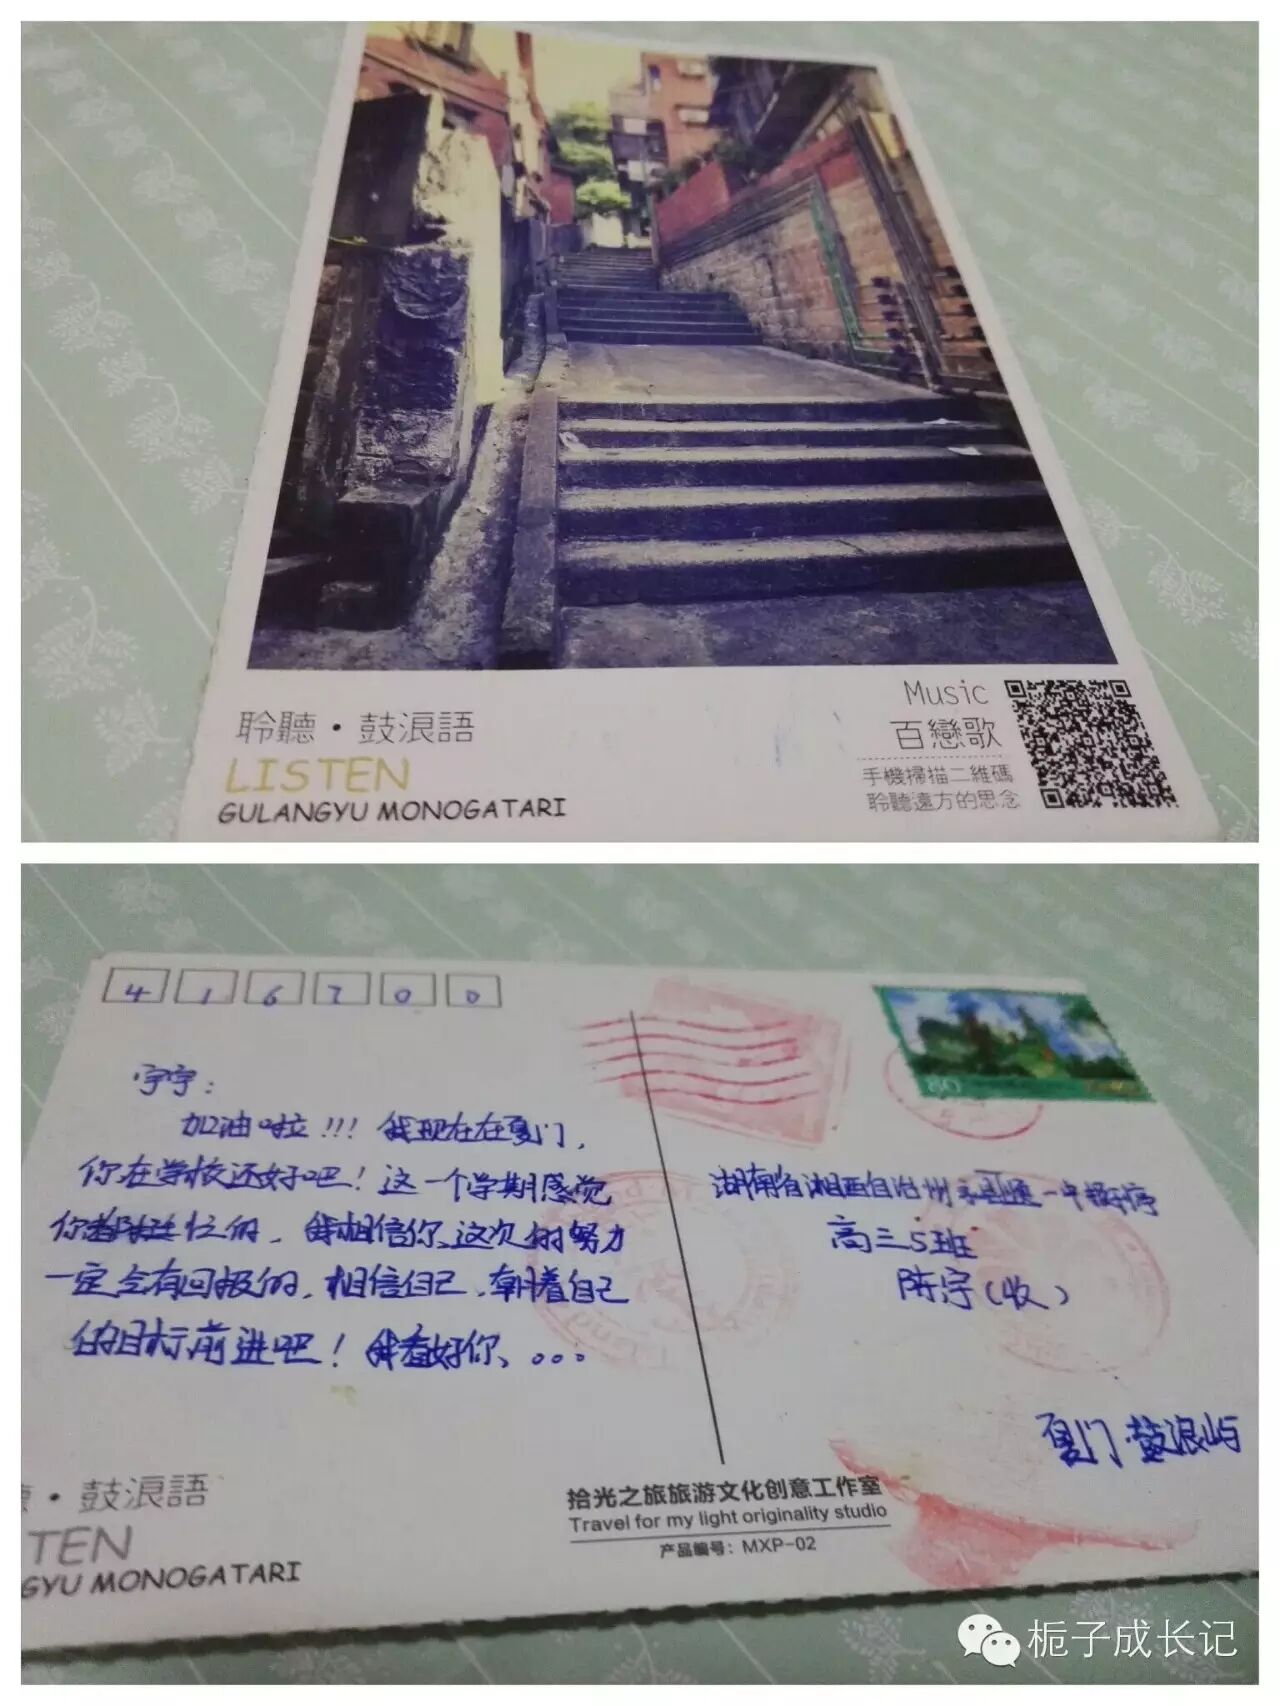 聆聽·鼓浪語
LISTEN
GULANGYU MONOGATARI
Music
百戀歌
手機掃描二維碼
聆聽遠方的思念
416700
宇宇：
加油啦!!! 我现在在厦门，
你在学校还好吧！这一个学期感觉
你都挺忙的，我相信你，这次的努力
一定会有回报的，相信自己，朝着自己
的目标前进吧！我看好你、。。。
80
湖南省湘西自治州永顺县一中
高三5班
陈宇(收)
厦门·鼓浪屿
·鼓浪語
TEN
GYU MONOGATARI
拾光之旅旅游文化创意工作室
Travel for my light originality studio
产品编号：MXP-02
栀子成长记